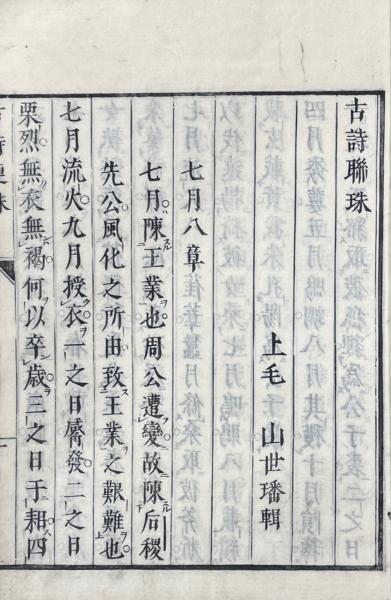 古詩聯珠
上毛 山世璠輯
七月八章
七月陳王業也周公遭變故陳后稷
先公風化之所由致王業之艱難也
七月流火九月授衣一之日觱發二之日
栗烈無衣無褐何以卒歲三之日于耜四